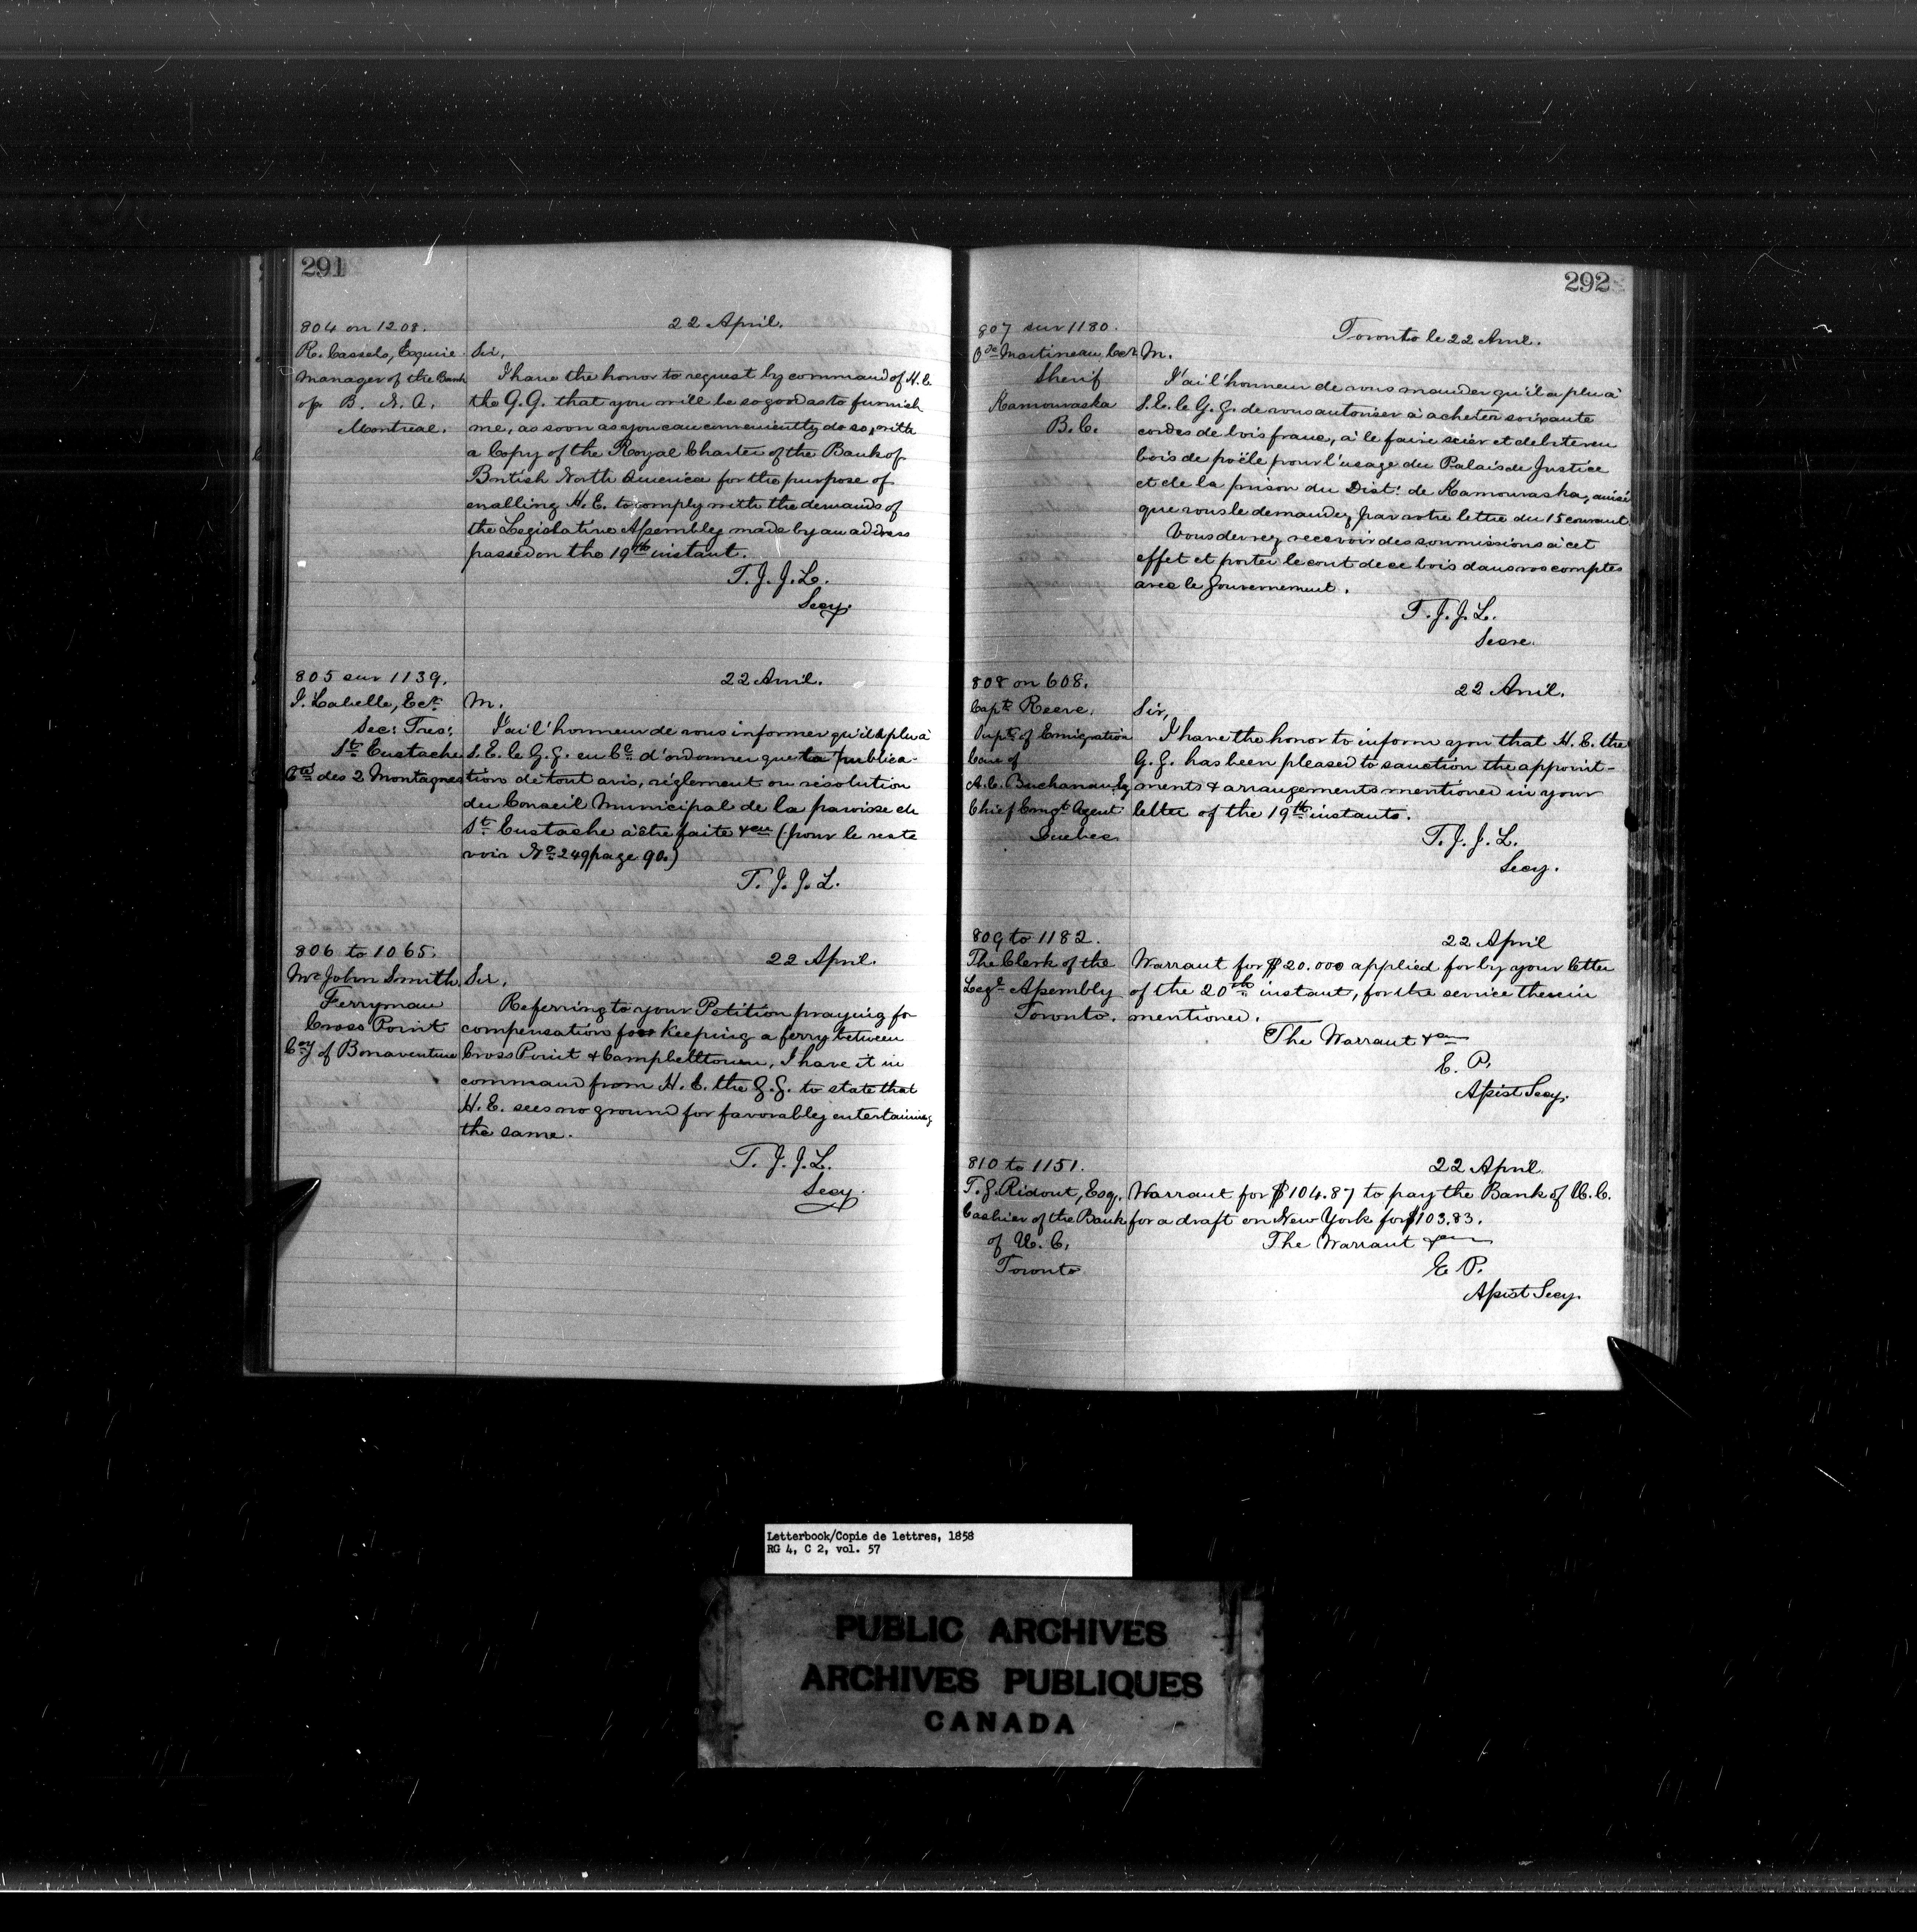 291
804 on 1208.
22 April.
R. Cassels, Esquire
Manager of the Bank
of B. N. A.
Montreal.
Sir,
I have the honor to request by command of H. E.
the G. G. that you will be so good as to furnish
me, as soon as you can conveniently do so, with
a Copy of the Royal Charter of the Bank of
British North America for the purpose of
enabling H. E. to comply with the demands of
the Legislative Assembly made by an address
passed on the 19th instant.
T. J. J. L.
Secy.
805 sur 1139.
22 Avril.
J. Labelle, Ecr.
Sec: Tres:
St Eustache
Cté des 2 Montagnes
M.
J'ai l'honneur de vous informer qu'il a plu à
S. E. le G. G. en Cl d'ordonner que la publica-
tion de tout avis, réglement ou résolution
du Conseil Municipal de la paroisse de
St Eustache à être faite &ca (pour le reste
voir No 249 page 90.)
T. J. J. L.
806 to 1065.
22 April.
Mr John Smith
Ferryman
Cross Point
Coy of Bonaventure
Sir,
Referring to your Petition praying for
compensation for keeping a ferry between
Cross Point & Campbelltown, I have it in
command from H. E. the G. G. to state that
H. E. sees no ground for favorably entertaining
the same.
T. J. J. L.
Secy.
292
807 sur 1180.
Toronto le 22 Avril.
Martineau, Ecr
Sherif
Kamouraska
B. C.
M.
J'ai l'honneur de vous mander qu'il a plu à
S. E. le G. G. de vous autoriser à acheter soixante
cordes de bois franc, à le faire scier et debiter en
bois de poële pour l'usage du Palais de Justice
et de la prison du Dist: de Kamouraska, ainsi
que vous le demandez par votre lettre du 15 courant
Vous devrez recevoir des soumissions à cet
effet et porter le cout de ce bois dans vos comptes
avec le Gouvernement.
T. J. J. L.
Secre.
808 on 608.
22 Avril.
Capt Reeve.
Supt of Emigration
Care of
A. C. Buchanan Eq
Chief Emgt Agent
Quebec
Sir,
I have the honor to inform you that H. E. the
G. G. has been pleased to sanction the appoint-
ments & arrangements mentioned in your
letter of the 19th instants.
T. J. J. L.
Secy.
809 to 1182.
22 April
The Clerk of the
Legl Assembly
Toronto.
Warrant for $20.000 applied for by your letter
of the 20th instant, for the service therein
mentioned.
The Warrant &ca
E. P.
Assist Secy.
810 to 1151.
22 April
T. G. Ridout, Esq.
Cashier of the Bank
of U. C.
Toronto
Warrant for $104.87 to pay the Bank of U. C.
for a draft on New York for $103.83.
The Warrant &ca
E. P.
Assist Secy.
Letterbook/Copie de lettres, 1858
RG 4, C 2, vol. 57
PUBLIC ARCHIVES
ARCHIVES PUBLIQUES
CANADA